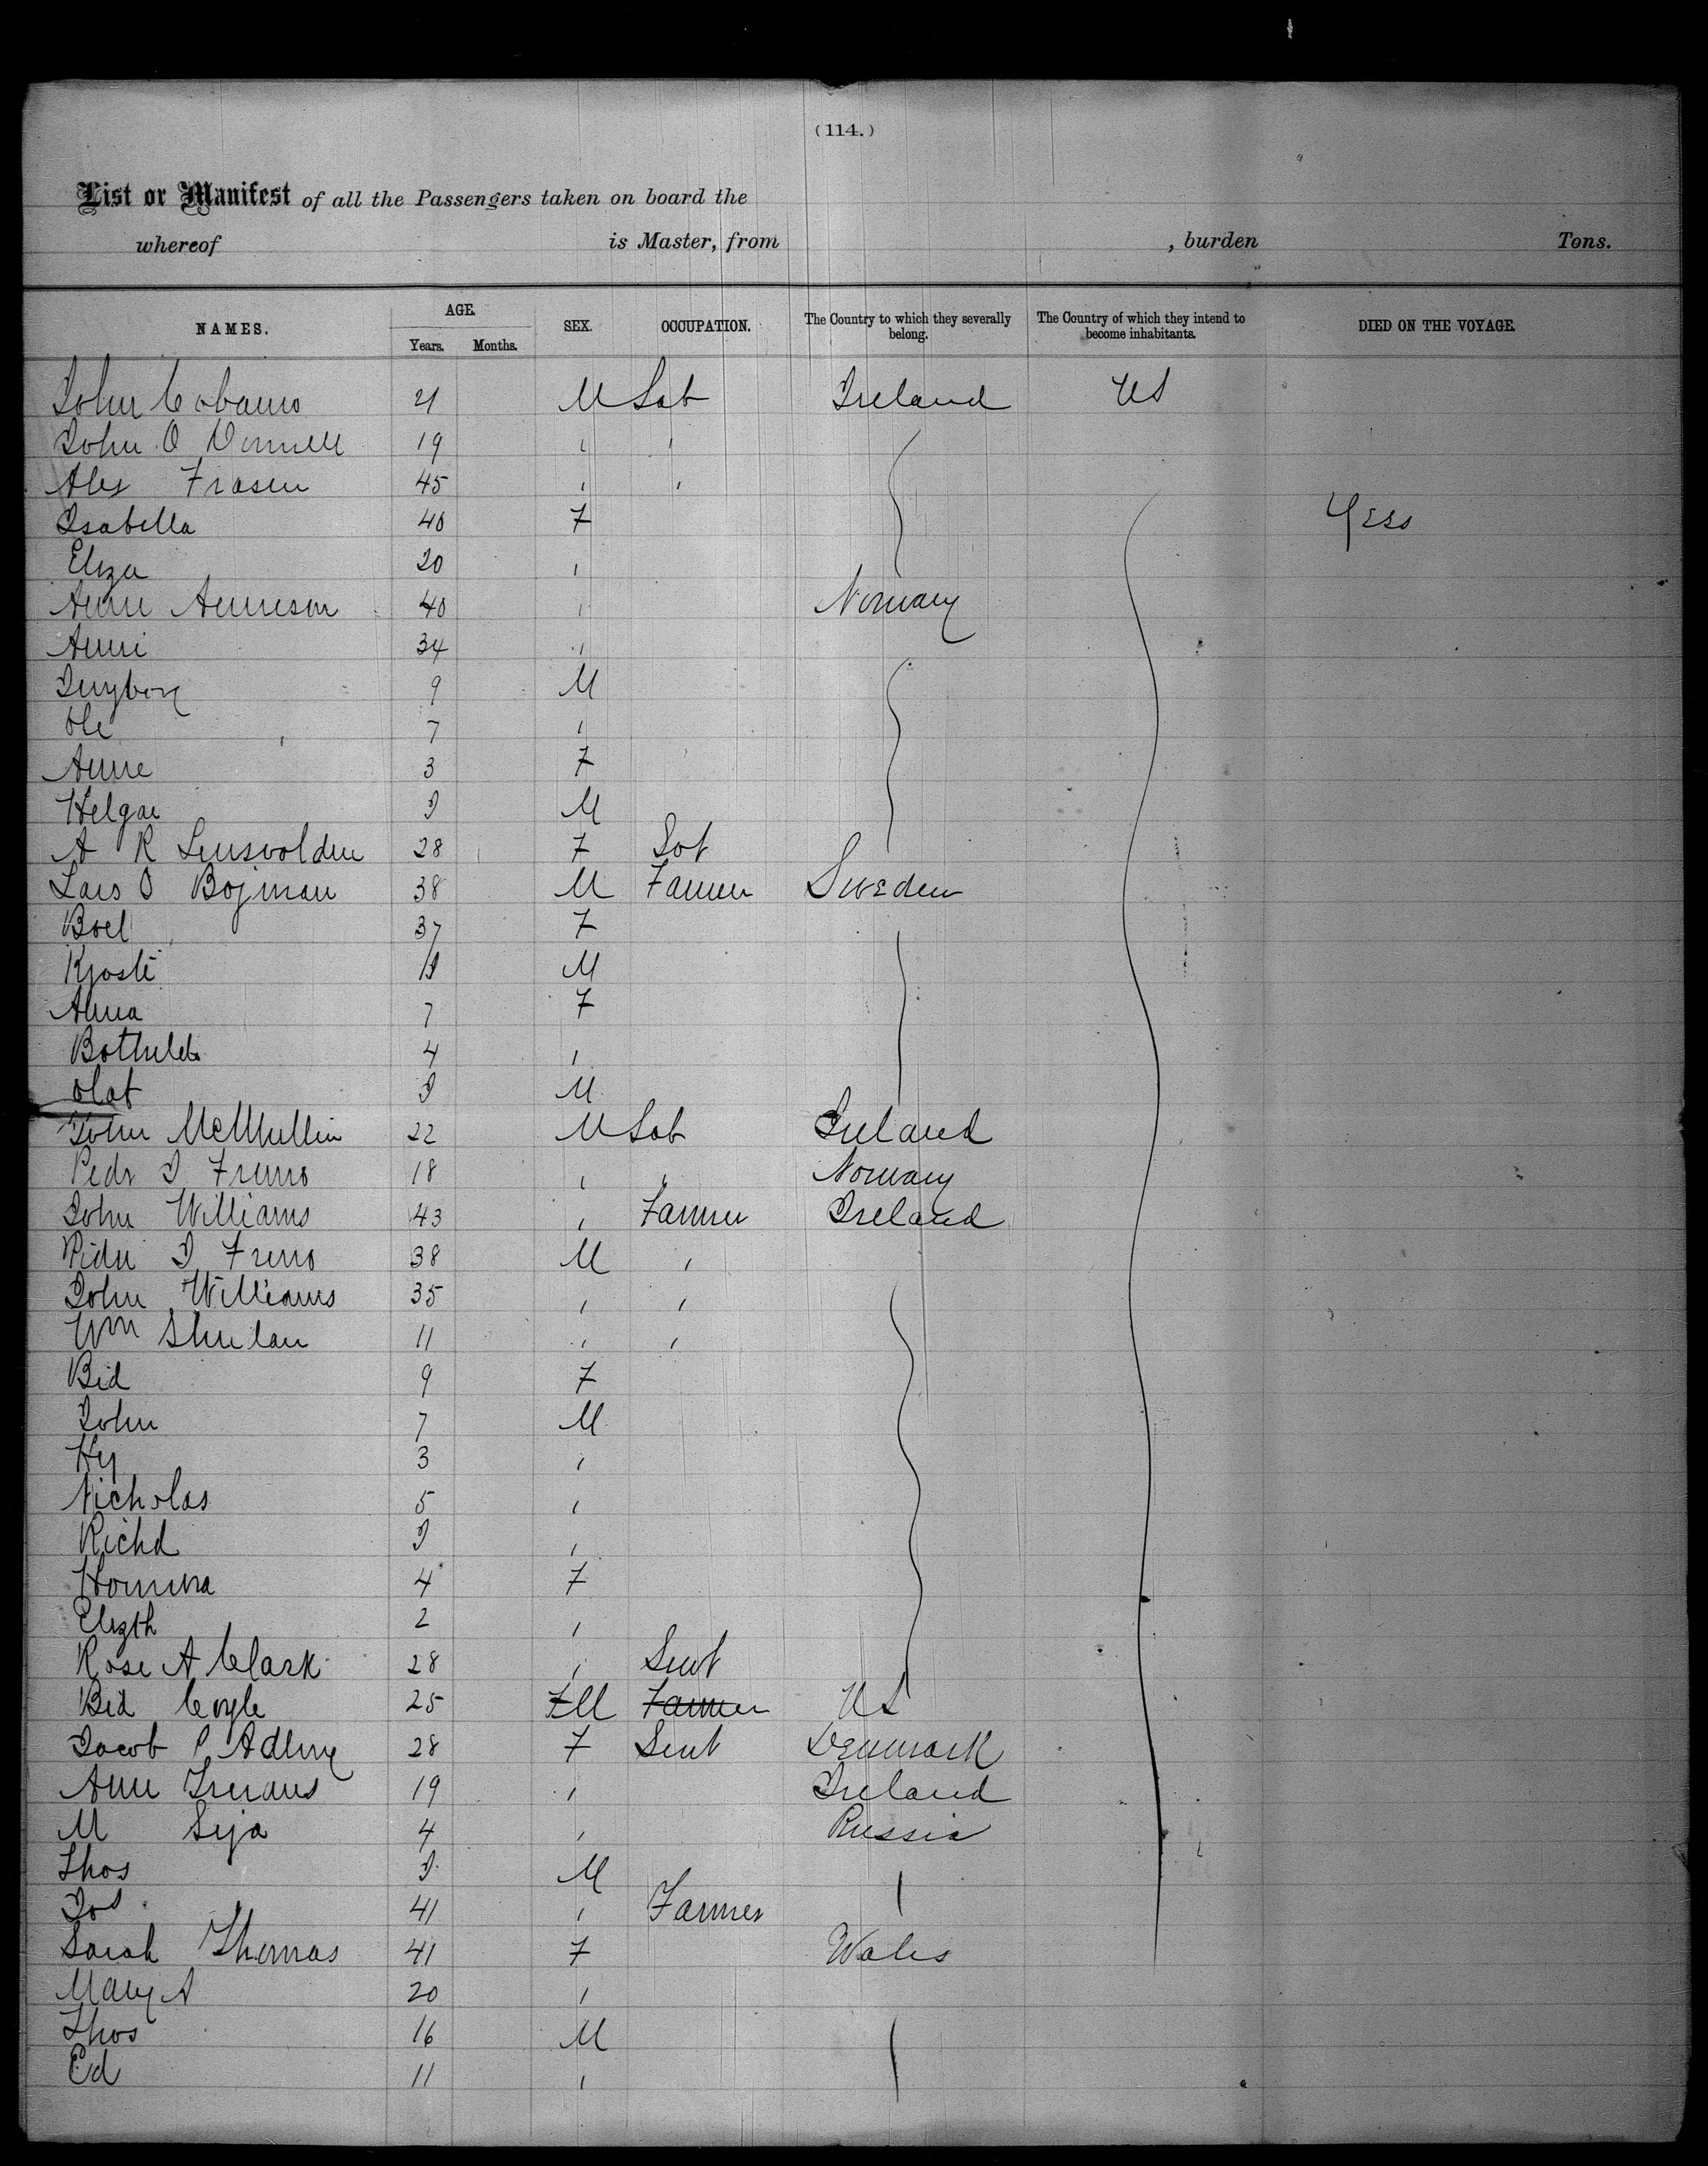 (114.)
List or Manifest of all the Passengers taken on board the
whereof is Master, from , burden Tons.
NAMES. AGE. Years. Months. SEX. OCCUPATION. The Country to which they severally belong. The Country of which they intend to become inhabitants. DIED ON THE VOYAGE.
John 21 M Lab Ireland US
John O Donnell 19 " "
Alex Fraser 45 " "
Isabella 40 F Yess
Eliza 20 "
Anne Anneson 40 " Norway
Anni 34 "
9 M
Ole 7 "
Anne 3 F
Helgar M
A R 28 F
Lars O Bojman 38 M Farmer Sweden
Boel 37 F
Kjosti M
Anna 7 F
Bothilda 4 "
Olof M
John McMullin 22 M Lab Ireland
Pedr I 18 " " Norway
John Williams 43 " Farmer Ireland
I 38 M "
John Williams 35 " "
Wm 11 " "
Bid 9 F
John 7 M
Hy 3 "
Nicholas 5 "
Richd "
4 F
Elizth 2 "
Rose A Clark 28 " Servt
Bid Coyle 25 F M Farmer US
Jacob P 28 F Servt Denmark
Ann 19 " Ireland
M Sija 4 " Russia
Thos M
Jos 41 " Farmer
Sarah Thomas 41 F Wales
Mary A 20 "
Thos 16 M
Ed 11 "